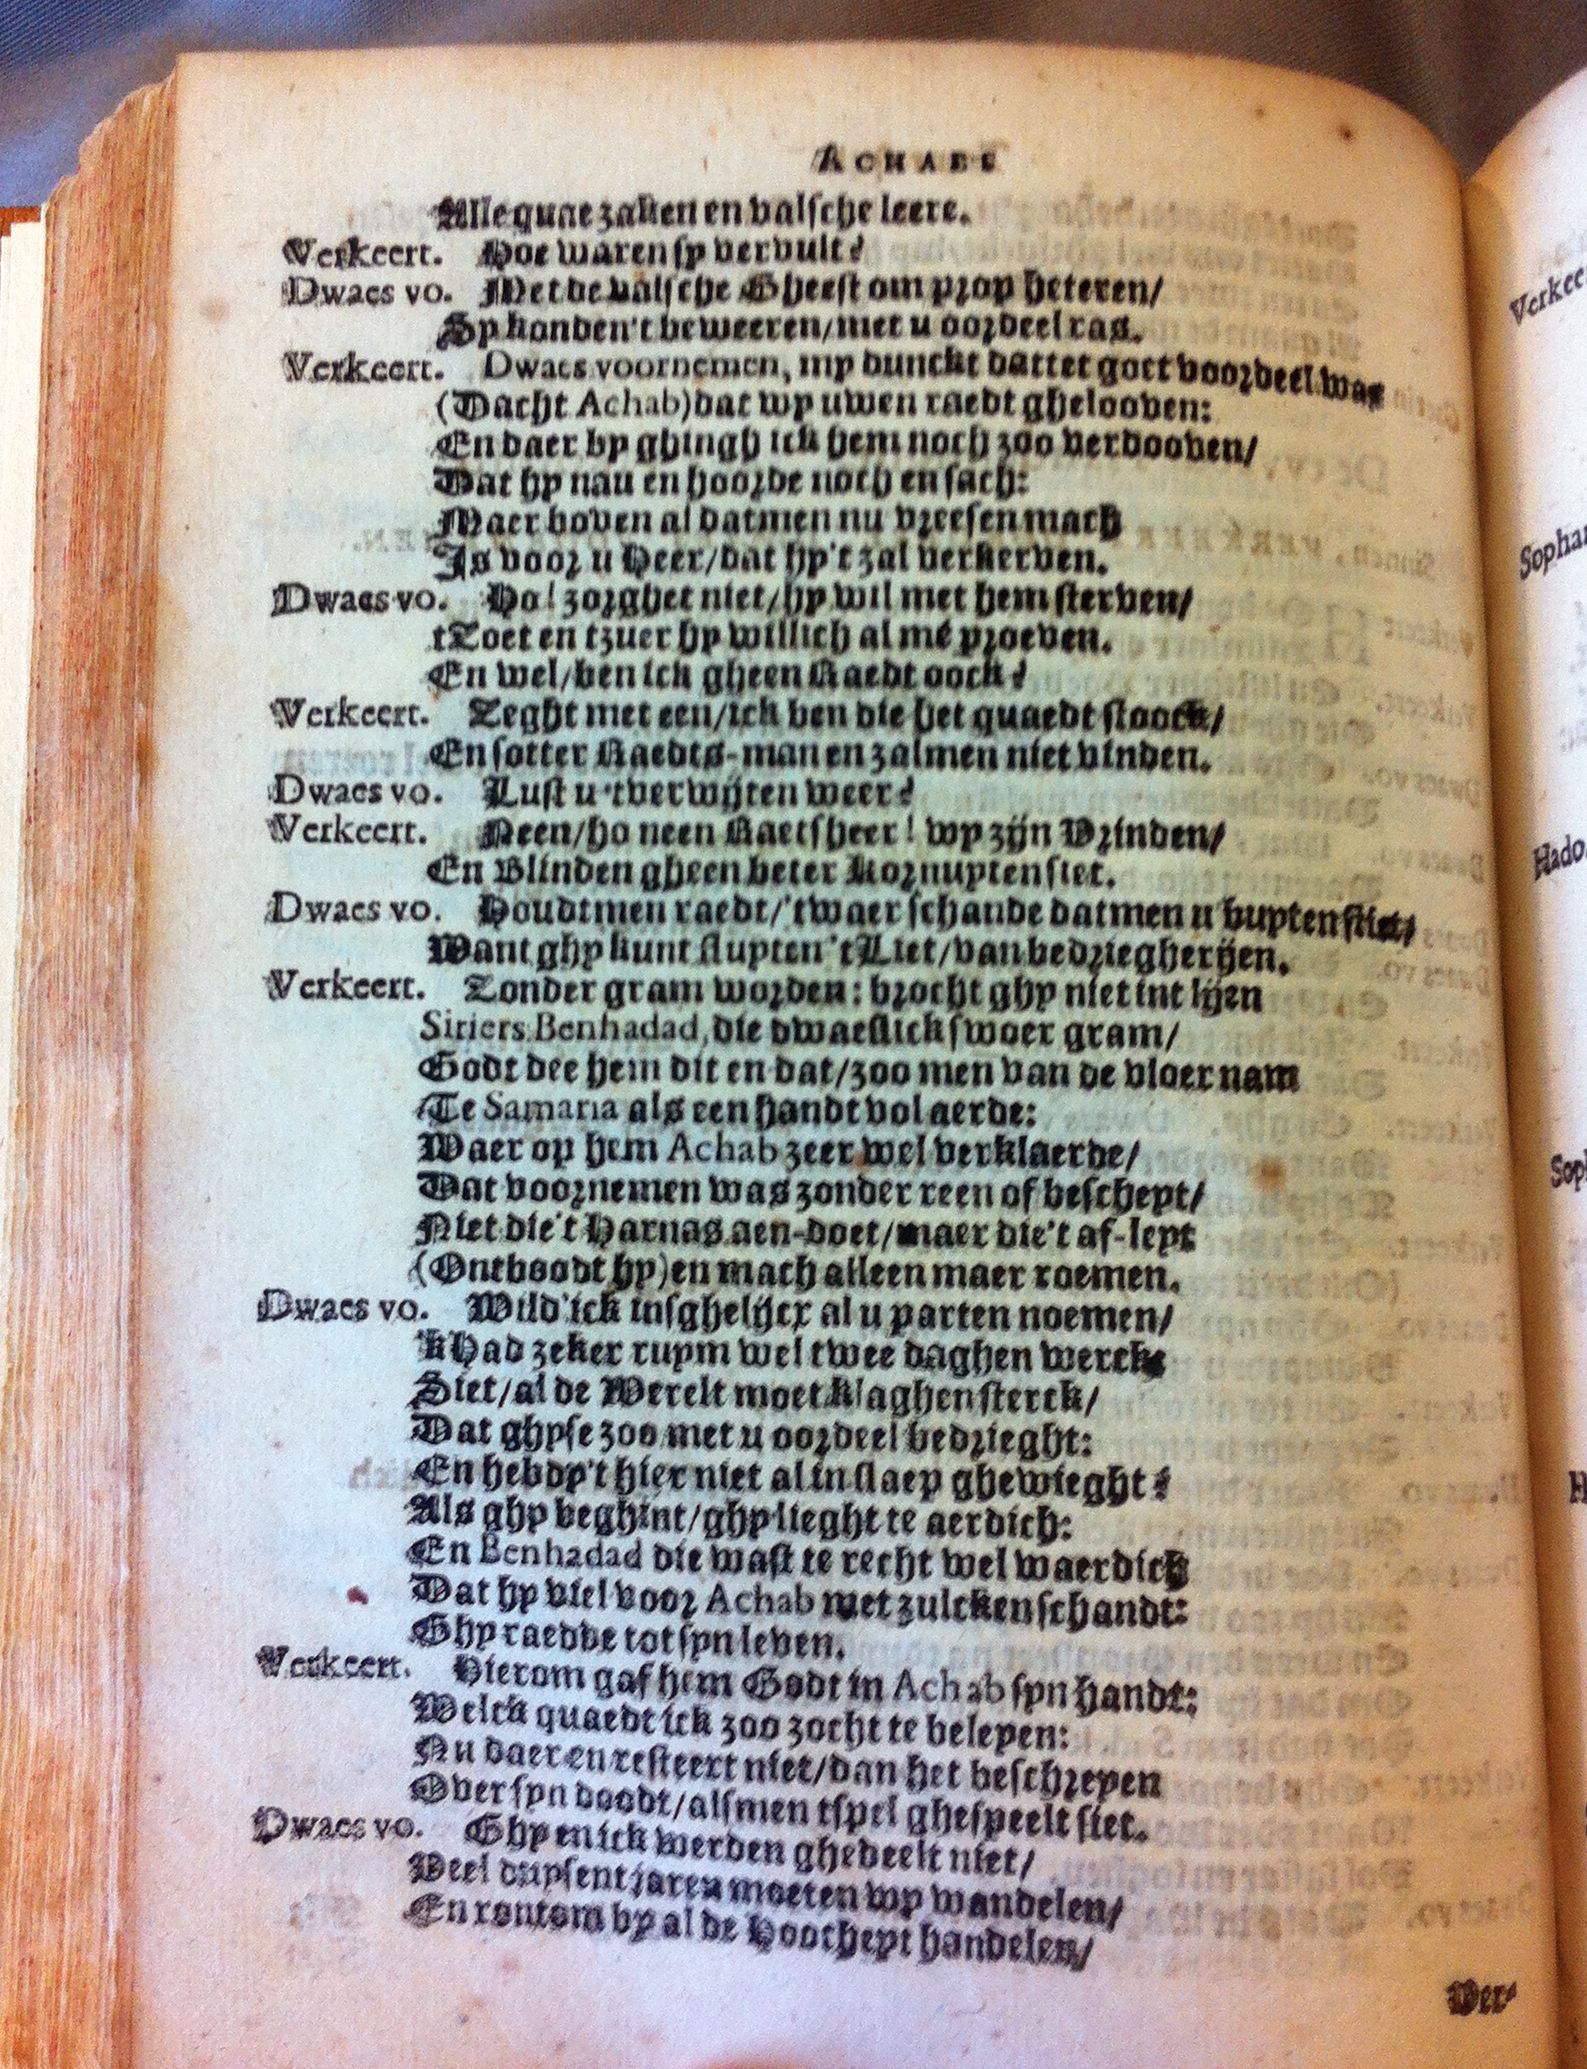 ACHABS
Alle quae zaken en valsche leere.
Verkeert. Hoe waren sy vervult?
Dwaes vo. Met de valsche Gheest om propheteren/
Sy konden't beweeren/met u oordeel ras.
Verkeert. Dwaes voornemen, my dunckt dattet goet voordeel was
(Dacht Achab) dat wy uwen raedt ghelooven:
En daer by ghingh ick hem noch zoo verdooven/
Dat hy nau en hoorde noch en sach:
Maer boven al datmen nu vreesen mach
Is voor u Heer/dat hy't zal verkerven.
Dwaes vo. Ho! zorghet niet/hy wil met hem sterven/
tZoet en tzuer hy willich al mé proeven.
En wel/ben ick gheen Raedt oock?
Verkeert. Zeght met een/ick ben die het quaedt stoock/
En sotter Raedts-man en zalmen niet vinden.
Dwaes vo. Lust u 'tverwijten weer?
Verkeert. Neen/ho neen Raetsheer! wy zijn Vrinden/
En Blinden gheen beter kornuyten siet.
Dwaes vo. Houdtmen raedt/'twaer schande datmen u buyten stiet/
Want ghy kunt sluyten 't Liet/van bedriegherijen.
Verkeert. Zonder gram worden: brocht ghy niet int lijen
Siriers Benhadad, die dwaeslick swoer gram/
Godt dee hem dit en dat/zoo men van de vloer nam
Te Samaria als een handt vol aerde:
Waer op hem Achab zeer wel verklaerde/
Dat voornemen was zonder reen of bescheyt/
Niet die't Harnas aen-doet/maer die't af-leyt
(Ontboodt hy) en mach alleen maer roemen.
Dwaes vo. Wild' ick insghelijcx al u parten noemen/
'kHad zeker ruym wel twee daghen werck:
Siet/al de Werelt moet klaghen sterck/
Dat ghyse zoo met u oordeel bedrieght:
En hebdy't hier niet al in slaep ghewieght?
Als ghy beghint/ghy lieght te aerdich:
En Benhadad die wast te recht wel waerdich
Dat hy viel voor Achab met zulcken schandt:
Ghy raedde tot syn leven.
Verkeert. Hierom gaf hem Godt in Achab syn handt:
Welck quaedt ick zoo zocht te beleyen:
Nu daer en resteert niet/dan het beschreyen
Over syn doodt/alsmen tspel ghespeelt siet.
Dwaes vo. Ghy en ick werden ghedeelt niet/
Veel duysent jaren moeten wy wandelen/
En rontom by al de Hoocheyt handelen/
Ver-